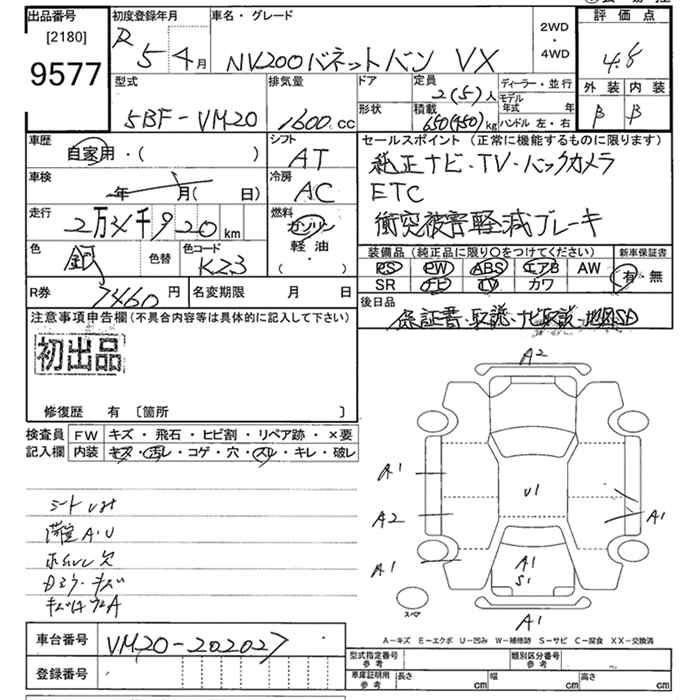 出品番号
[2180]
9577
初度登録年月
R 5年 4月
車名・グレード
NV200バネットバン VX
2WD
・
4WD
評価点
4.8
外装 内装
B B
型式
5BF-VM20
排気量
1600cc
ドア
形状
定員
2(5)人
積載
650(450)kg
ディーラー・並行
モデル年式 年
ハンドル 左・右
車歴
自家用・( )
シフト
AT
セールスポイント (正常に機能するものに限ります)
純正ナビ・TV・バックカメラ
ETC
衝突被害軽減ブレーキ
車検
年 月( 日)
冷房
AC
走行
2万 千920km
燃料
ガソリン
軽油
・
( )
色
銀
色替
色コード
K23
装備品(純正品に限り○をつけてください)
新車保証書
PS PW ABS エアB AW
SR ナビ TV カワ
有・無
R券
7460円
名変期限 月 日
後日品
保証書・取説・ナビ取説・地図SD
注意事項申告欄(不具合内容等は具体的に記入して下さい)
初出品
修復歴 有 〔箇所 〕
検査員記入欄
FW キズ・飛石・ヒビ割・リペア跡・×要
内装 キズ・汚レ・コゲ・穴・スレ・キレ・破レ
A2
A1
U1
A2
A1
A1
A1
S1
スペア
A1
シート
荷室 A・U
欠
キズ
A
A－キズ E－エクボ U－凹み W－補修跡 S－サビ C－腐食 XX－交換済
車台番号
VM20-202027
登録番号
型式指定番号
参考
類別区分番号
参考
車庫証明用
参考
長さ cm
幅 cm
高さ cm